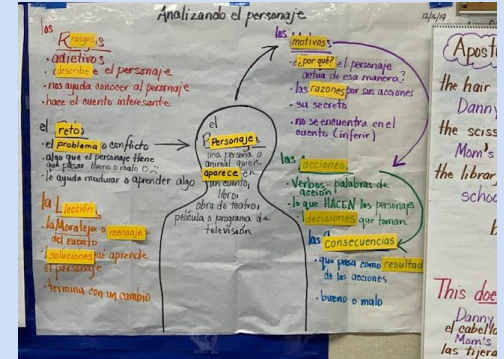 Analizando el personaje
los
Rasgos
• adjetivos
• describe el personaje
• nos ayuda conocer al personaje
• hace el cuento interesante
el reto
• el problema o conflicto
• algo que el personaje tiene
que pasar (bueno o malo)
• le ayuda madurar o aprender algo
la Lección
• la Moraleja o mensaje
del cuento
• soluciones que aprende
el personaje
• termina con un cambio
el
Personaje
una persona o
animal quien
aparece en
un cuento,
libro,
obra de teatro,
película o programa de
televisión
los
motivos
• ¿por qué? el personaje
actua de esa manera?
• las razones por sus acciones
• su secreto
• no se encuentra en el
cuento (inferir)
las acciones
• Verbos - palabras de
acción
• lo que HACEN los personajes
• decisiones que toman
las Consecuencias
• que pasa como resultado
de las acciones
• bueno o malo
the hair
Danny
the sciss
Mom's
the librar
schoo
This doe
Danny
el cabello
Mom's
las tijera